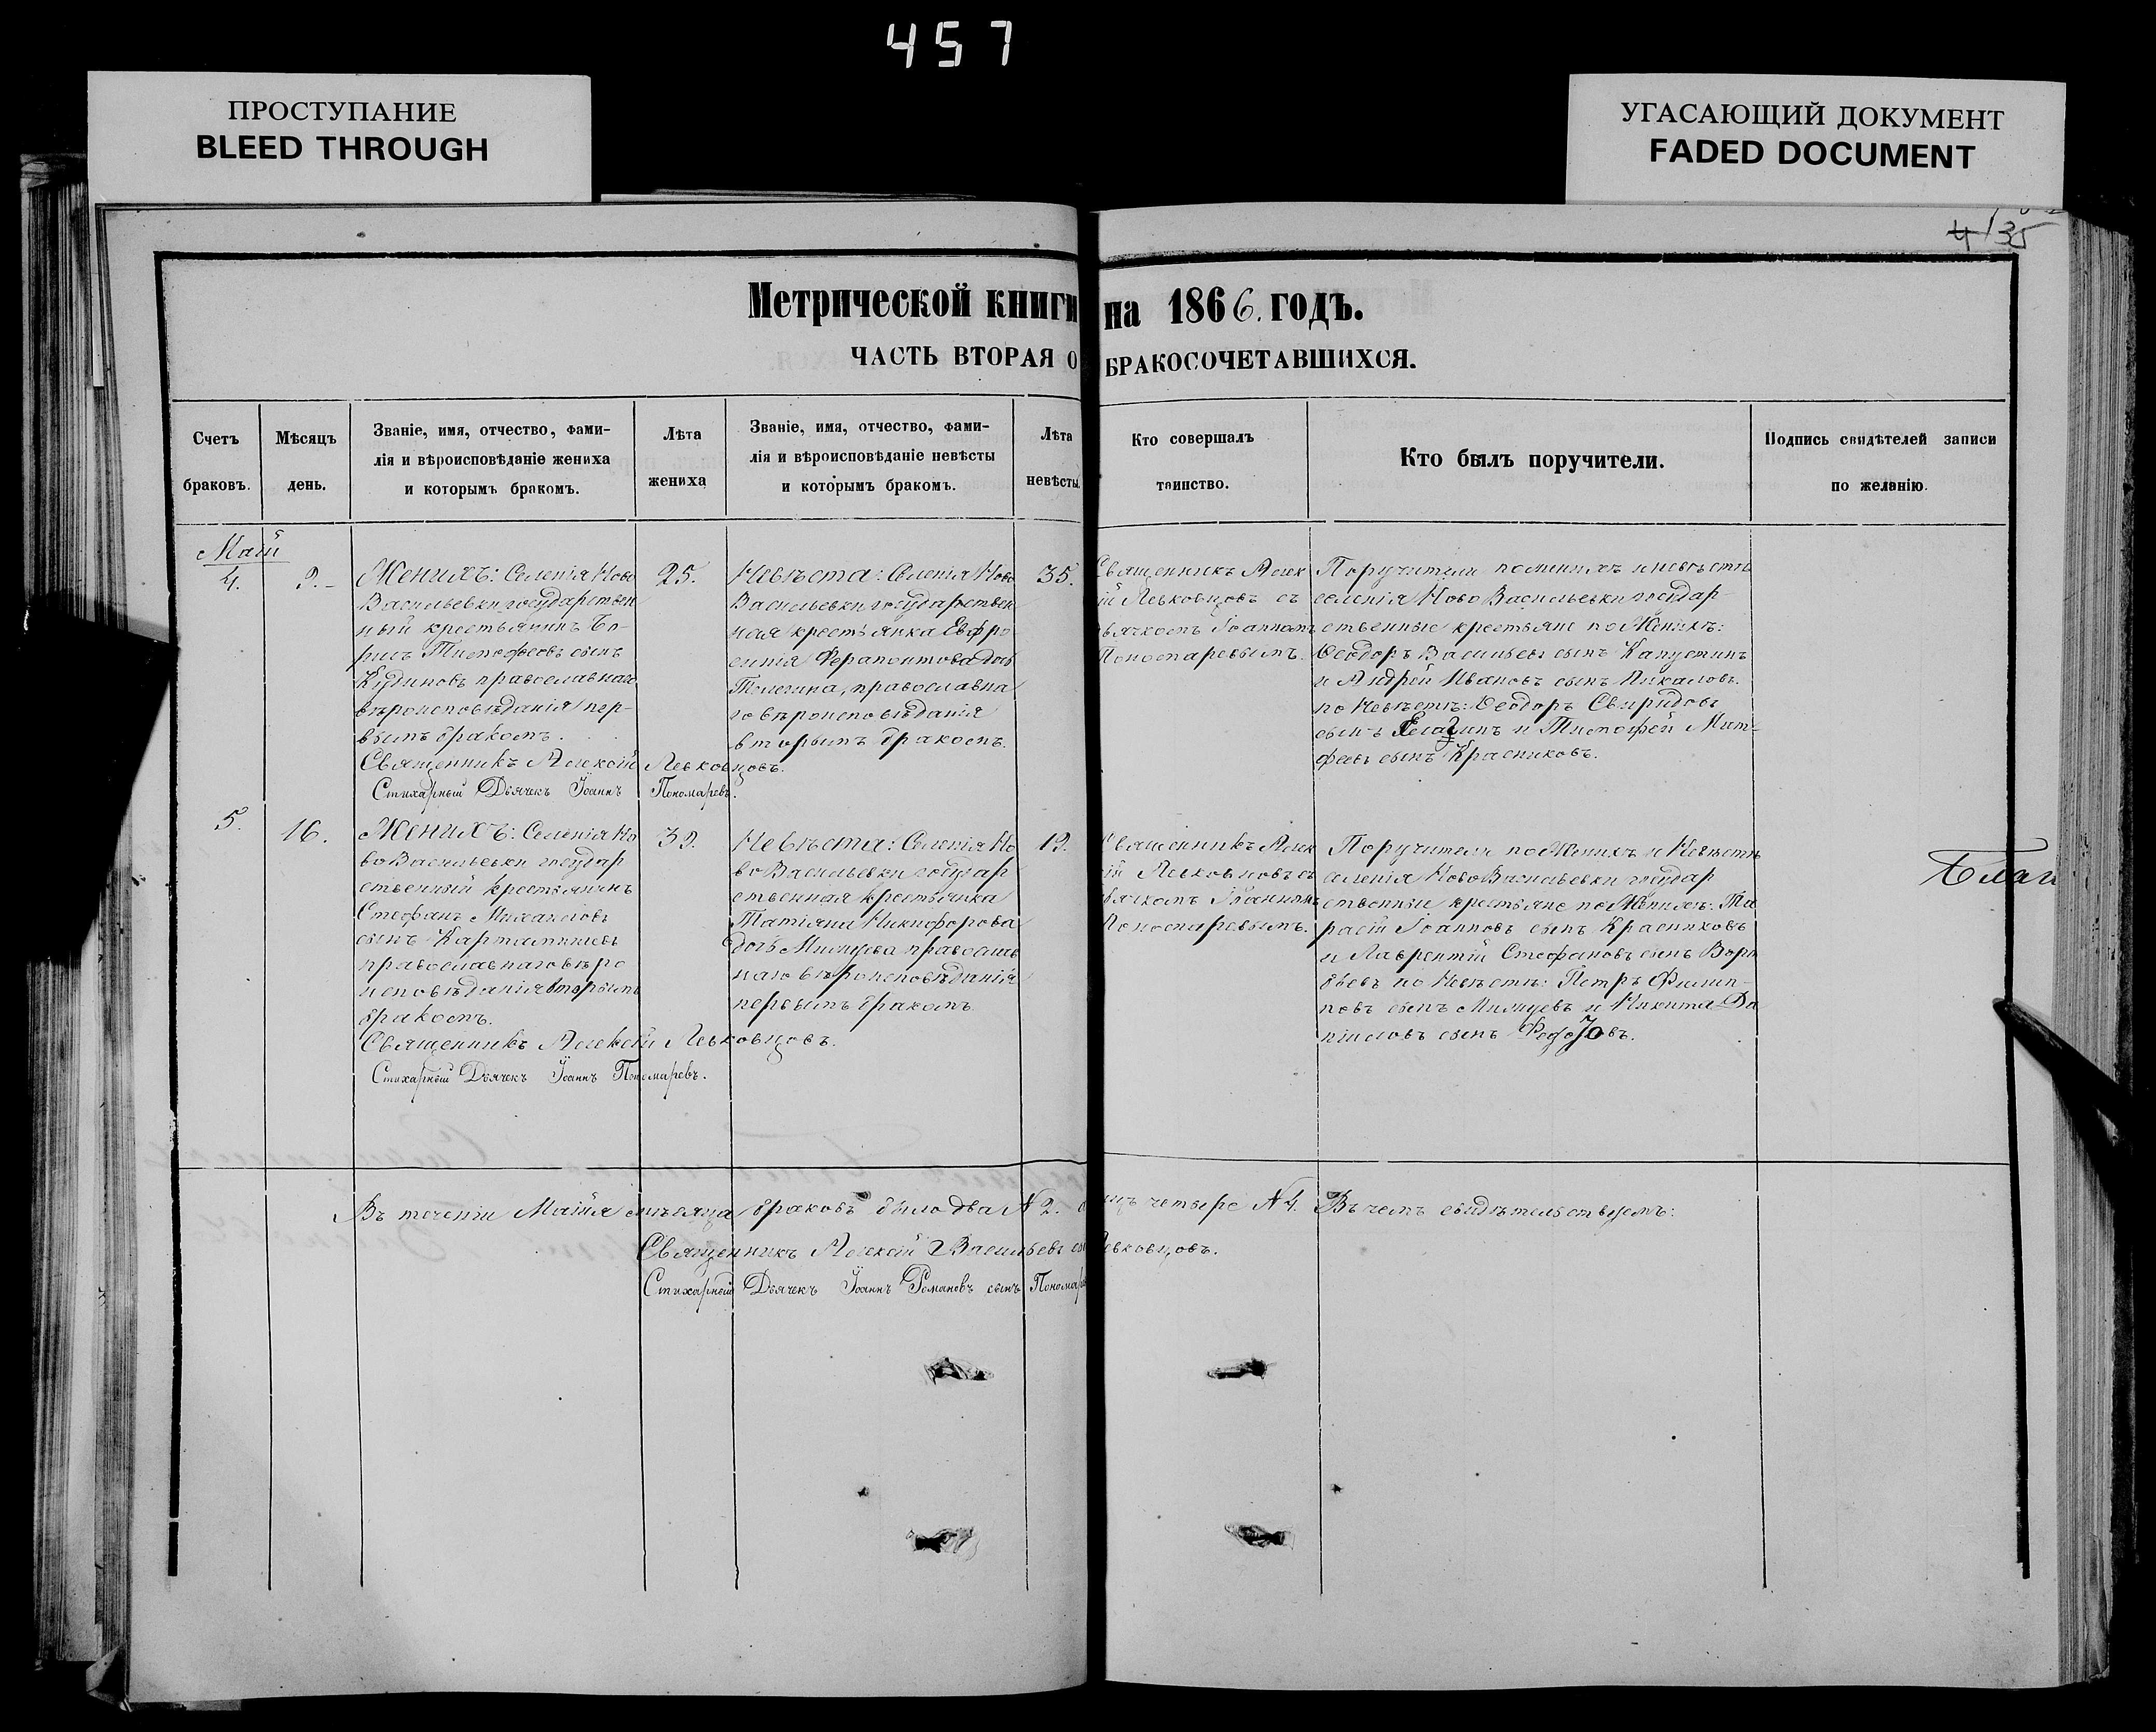 457
ПРОСТУПАНИЕ
BLEED THROUGH
УГАСАЮЩИЙ ДОКУМЕНТ
FADED DOCUMENT
135
Метрической книги на 1866. годъ.
ЧАСТЬ ВТОРАЯ О БРАКОСОЧЕТАВШИХСЯ.
Счетъ
браковъ.
Мѣсяцъ
день.
Званіе, имя, отчество, фами-
лія и вѣроисповѣданіе жениха
и которымъ бракомъ.
Лѣта
жениха
Званіе, имя, отчество, фами-
лія и вѣроисповѣданіе невѣсты
и которымъ бракомъ.
Лѣта
невѣсты
Кто совершалъ
таинство.
Кто былъ поручители.
Подпись свидѣтелей записи
по желанію.
Маій
4.
9.
Женихъ: Селенія Ново
Васильевки государствен
ный крестьянинъ Бо-
рисъ Тимофеевъ сынъ
Кудиновъ православнаго
вѣроисповѣданія пер-
вымъ бракомъ.
25.
Невѣста: Селенія Ново
Васильевки государствен
ная крестьянка Евфро
синія Ферапонтова дочь
православна
го вѣроисповѣданія
вторымъ бракомъ.
35.
Священникъ Алек
ій Левковцовъ съ
дьячкомъ Іоанномъ
Пономаревымъ.
Поручители по женихѣ и невѣстѣ
селенія Ново Васильевки государ
ственные крестьяне по Женихѣ:
Ѳеодоръ Васильевъ сынъ Капустинъ
и Андрей Ивановъ сынъ Пикаловъ.
по Невѣстѣ: Ѳеодоръ Свиридовъ
сынъ Елагинъ и Тимофей Мат-
феевъ сынъ Красниковъ.
Священникъ Алексій Левковцовъ.
Стихарный Дьячекъ Іоаннъ Пономаревъ.
5.
16.
Женихъ: Селенія Но
воВасильевки государ
ственный крестьянинъ
Стефанъ Михаиловъ
сынъ Картамышевъ
православнаго вѣро
исповѣданія вторымъ
бракомъ.
39.
Невѣста: Селенія Но
воВасильевки государ
ственная крестьянка
Татіяна Никифорова
дочь православ
наго вѣроисповѣданія
первымъ бракомъ.
19.
Священникъ Алек
ій Левковцовъ съ
дьячкомъ Іоанномъ
Пономаревымъ.
Поручители по Женихѣ и Невѣстѣ
селенія НовоВасильевки государ
ственные крестьяне по Женихѣ: Та
расій Іоанновъ сынъ Красниковъ
и Лаврентій Стефановъ сынъ Воро
бьевъ по Невѣстѣ: Петръ Филип-
повъ сынъ и Никита Да
ніиловъ сынъ
Благ
Священникъ Алексій Левковцовъ.
Стихарный Дьячекъ Іоаннъ Пономаревъ.
Въ теченіи Маія мѣсяца браковъ было два N 2. четыре N 4. Въ чемъ свидѣтельствуемъ:
Священникъ Алексій Васильевъ сынъ Левковцовъ.
Стихарный Дьячекъ Іоаннъ Романовъ сынъ Пономарев